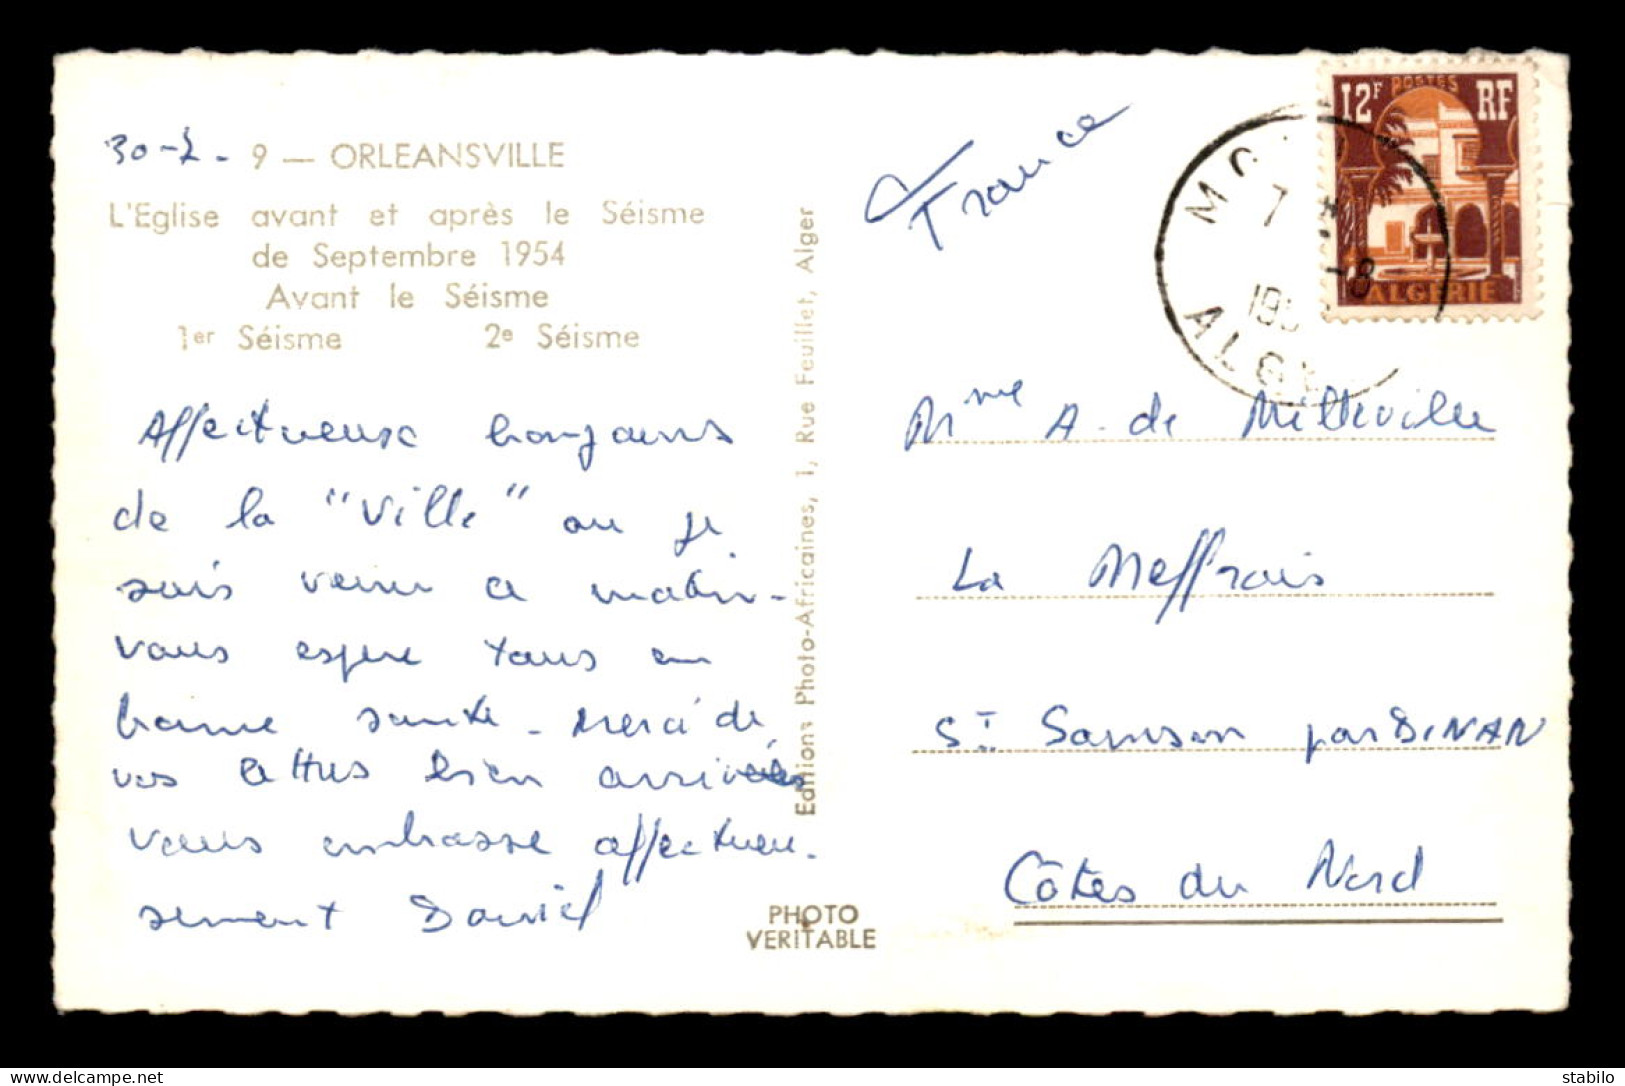 30-7-
9 — ORLEANSVILLE
L'Eglise avant et après le Séisme
de Septembre 1954
Avant le Séisme
1er Séisme 2e Séisme
Affectueux bonjours
de la "Ville" ou je
suis venu ce matin-
vous espère tous en
bonne santé - Merci de
vos lettres bien arrivées
vous embrasse affectueu-
sement Daniel
Editions Photo-Africaines, 1, Rue Feuillet, Alger
PHOTO
VERITABLE
France
12F POSTES RF
ALGERIE
7
-8
195
Mme A. de Milleville
La Meffrais
St Samson par DINAN
Côtes du Nord
stabilo